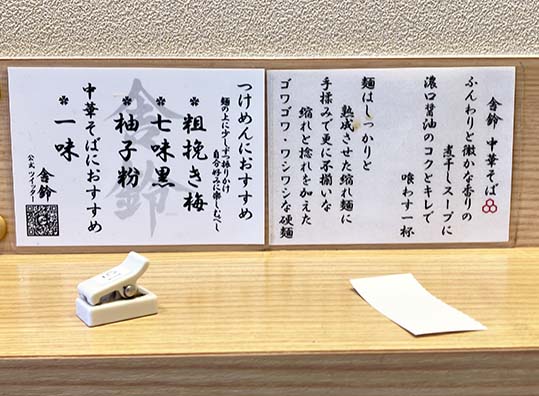 舎鈴 中華そば
ふんわりと微かな香りの
煮干しスープに
濃口醤油のコクとキレで
喰わす一杯
麺はしっかりと
熟成させた縮れ麺に
手揉みで更に不揃いな
縮れと捻れを加えた
ゴワゴワ・ワシワシな硬麺
つけめんにおすすめ
麺の上に少しずつ振りかけ
自分好みに楽しむべし
* 粗挽き梅
* 七味黒
* 柚子粉
中華そばにおすすめ
* 一味
舎鈴
公式 ツイッター
舎鈴